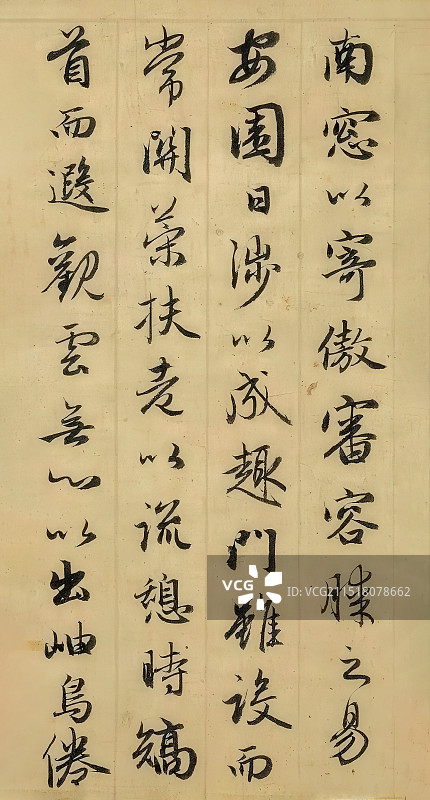 南窓以寄傲審容膝之易
安園日涉以成趣門雖設而
常關策扶老以流憩時矯
首而遐觀雲無心以出岫鳥倦
VCG
VCG211518078662